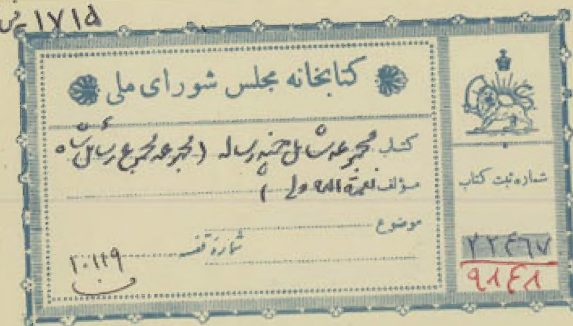 ۱۷۱۵
كتابخانه مجلس شورای ملی
كتاب مجموعه شامل چند رساله (مجموعه رسائل شاه
مؤلف نعمة الله ولی)
موضوع
شماره قفسه
۱۰۱۱۹
شماره ثبت كتاب
۲۲۴۶۷
۹۱۴۱